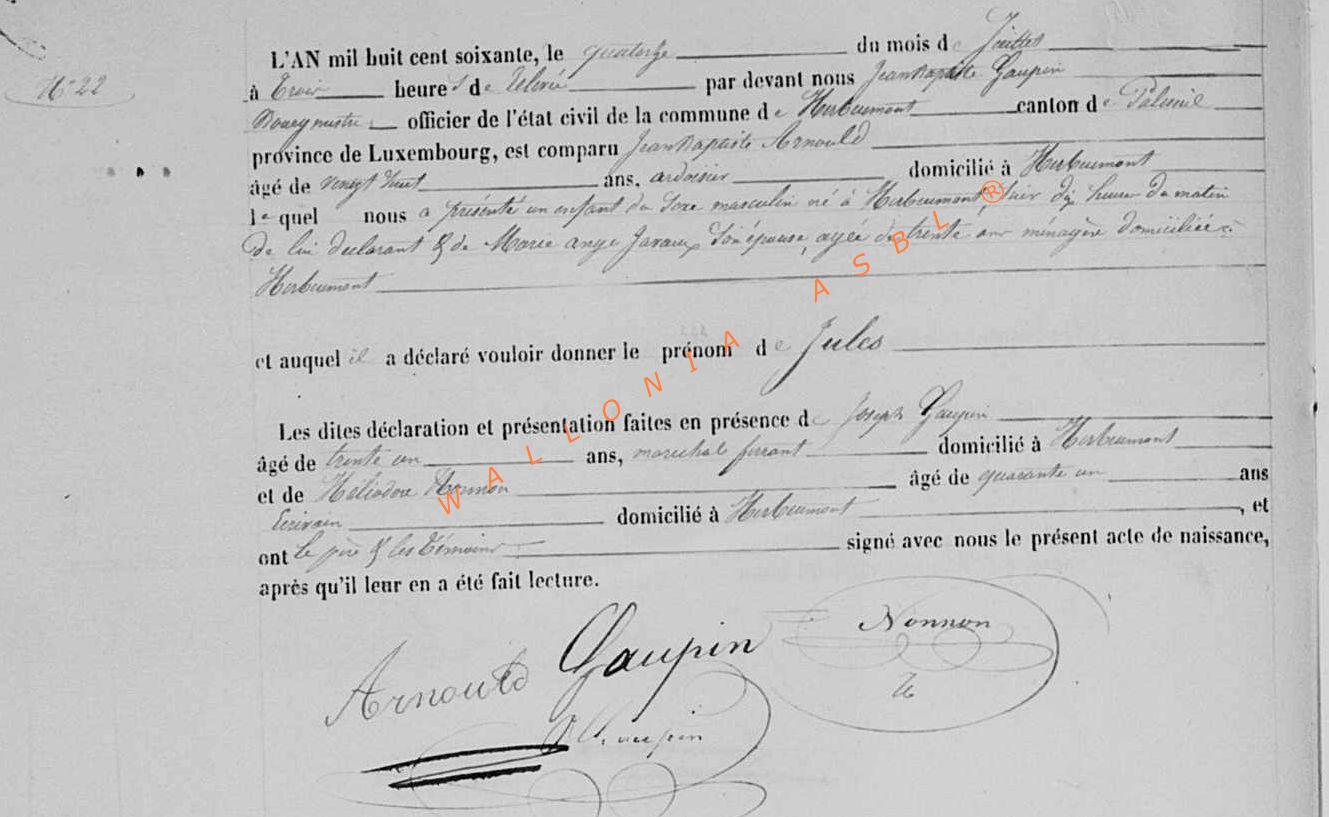 N° 22
L'AN mil huit cent soixante, le quatorze du mois de Juillet
à trois heures de relevée par devant nous Jean Baptiste Gaupin
Bourgmestre officier de l'état civil de la commune de Herbeumont canton de Paliseul
province de Luxembourg, est comparu Jean Baptiste Arnould
âgé de vingt huit ans, ardoisier domicilié à Herbeumont
lequel nous a présenté un enfant du sexe masculin né à Herbeumont, hier dix heures du matin
de lui déclarant & de Marie ange Javaux son épouse, agée de trente ans ménagère domiciliée à
Herbeumont
et auquel il a déclaré vouloir donner le prénom de Jules
Les dites déclaration et présentation faites en présence de Joseph Gaupin
âgé de trente un ans, marechal ferrant domicilié à Herbeumont
et de Héliodore Nonnon âgé de quarante un ans
Ecrivain domicilié à Herbeumont, et
ont le père & les témoins signé avec nous le présent acte de naissance,
après qu'il leur en a été fait lecture.
Nonnon
Gaupin
Arnould
WALLONIA ASBL ®